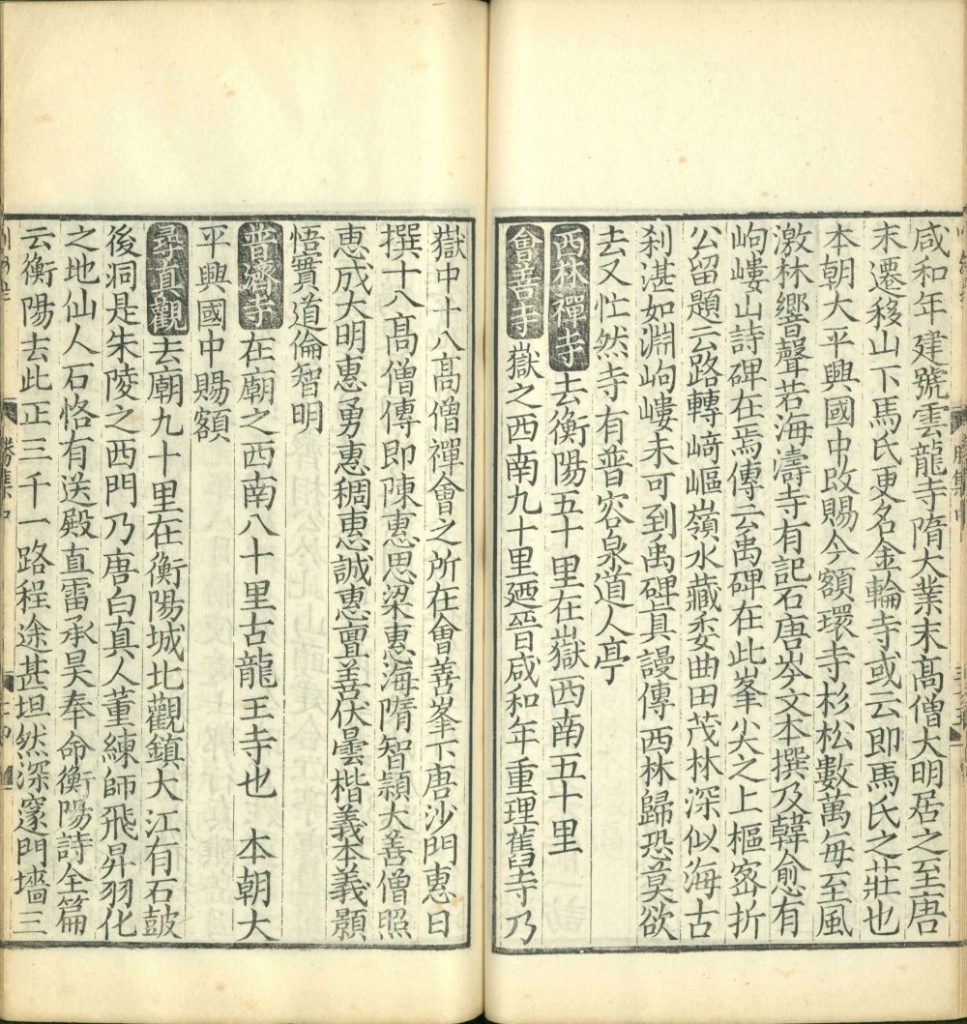 咸和年建號雲龍寺隋大業末髙僧大明居之至唐
末遷移山下馬氏更名金輪寺或云即馬氏之莊也
本朝大平興國中改賜今額環寺杉松數萬每至風
激林響聲若海濤寺有記石唐岑文本撰乃韓愈有
岣嶁山詩碑在焉傳云禹碑在此峯尖之上樞宻折
公留題云路轉﨑嶇嶺水藏委曲田茂林深似海古
刹湛如淵岣嶁未可到禹碑真謾傳西林歸恐莫欲
去又忙然寺有普容泉道人亭
西林禪寺去衡陽五十里在嶽西南五十里
會善寺嶽之西南九十里廼晉咸和年重理舊寺乃
嶽中十八髙僧禪會之所在會善峯下唐沙門惠日
撰十八髙僧傳即陳惠思梁惠海隋智顗大善僧照
惠成大明惠勇惠稠惠誠惠亶善伏曇楷義本義顥
悟實道倫智明
普濟寺在廟之西南八十里古龍王寺也 本朝大
平興國中賜額
尋真觀去廟九十里在衡陽城北觀鎮大江有石皷
後洞是朱陵之西門乃唐白真人董練師飛昇羽化
之地仙人石恪有送殿直雷承昊奉命衡陽詩全篇
云衡陽去此正三千一路程途甚坦然深邃門墻三